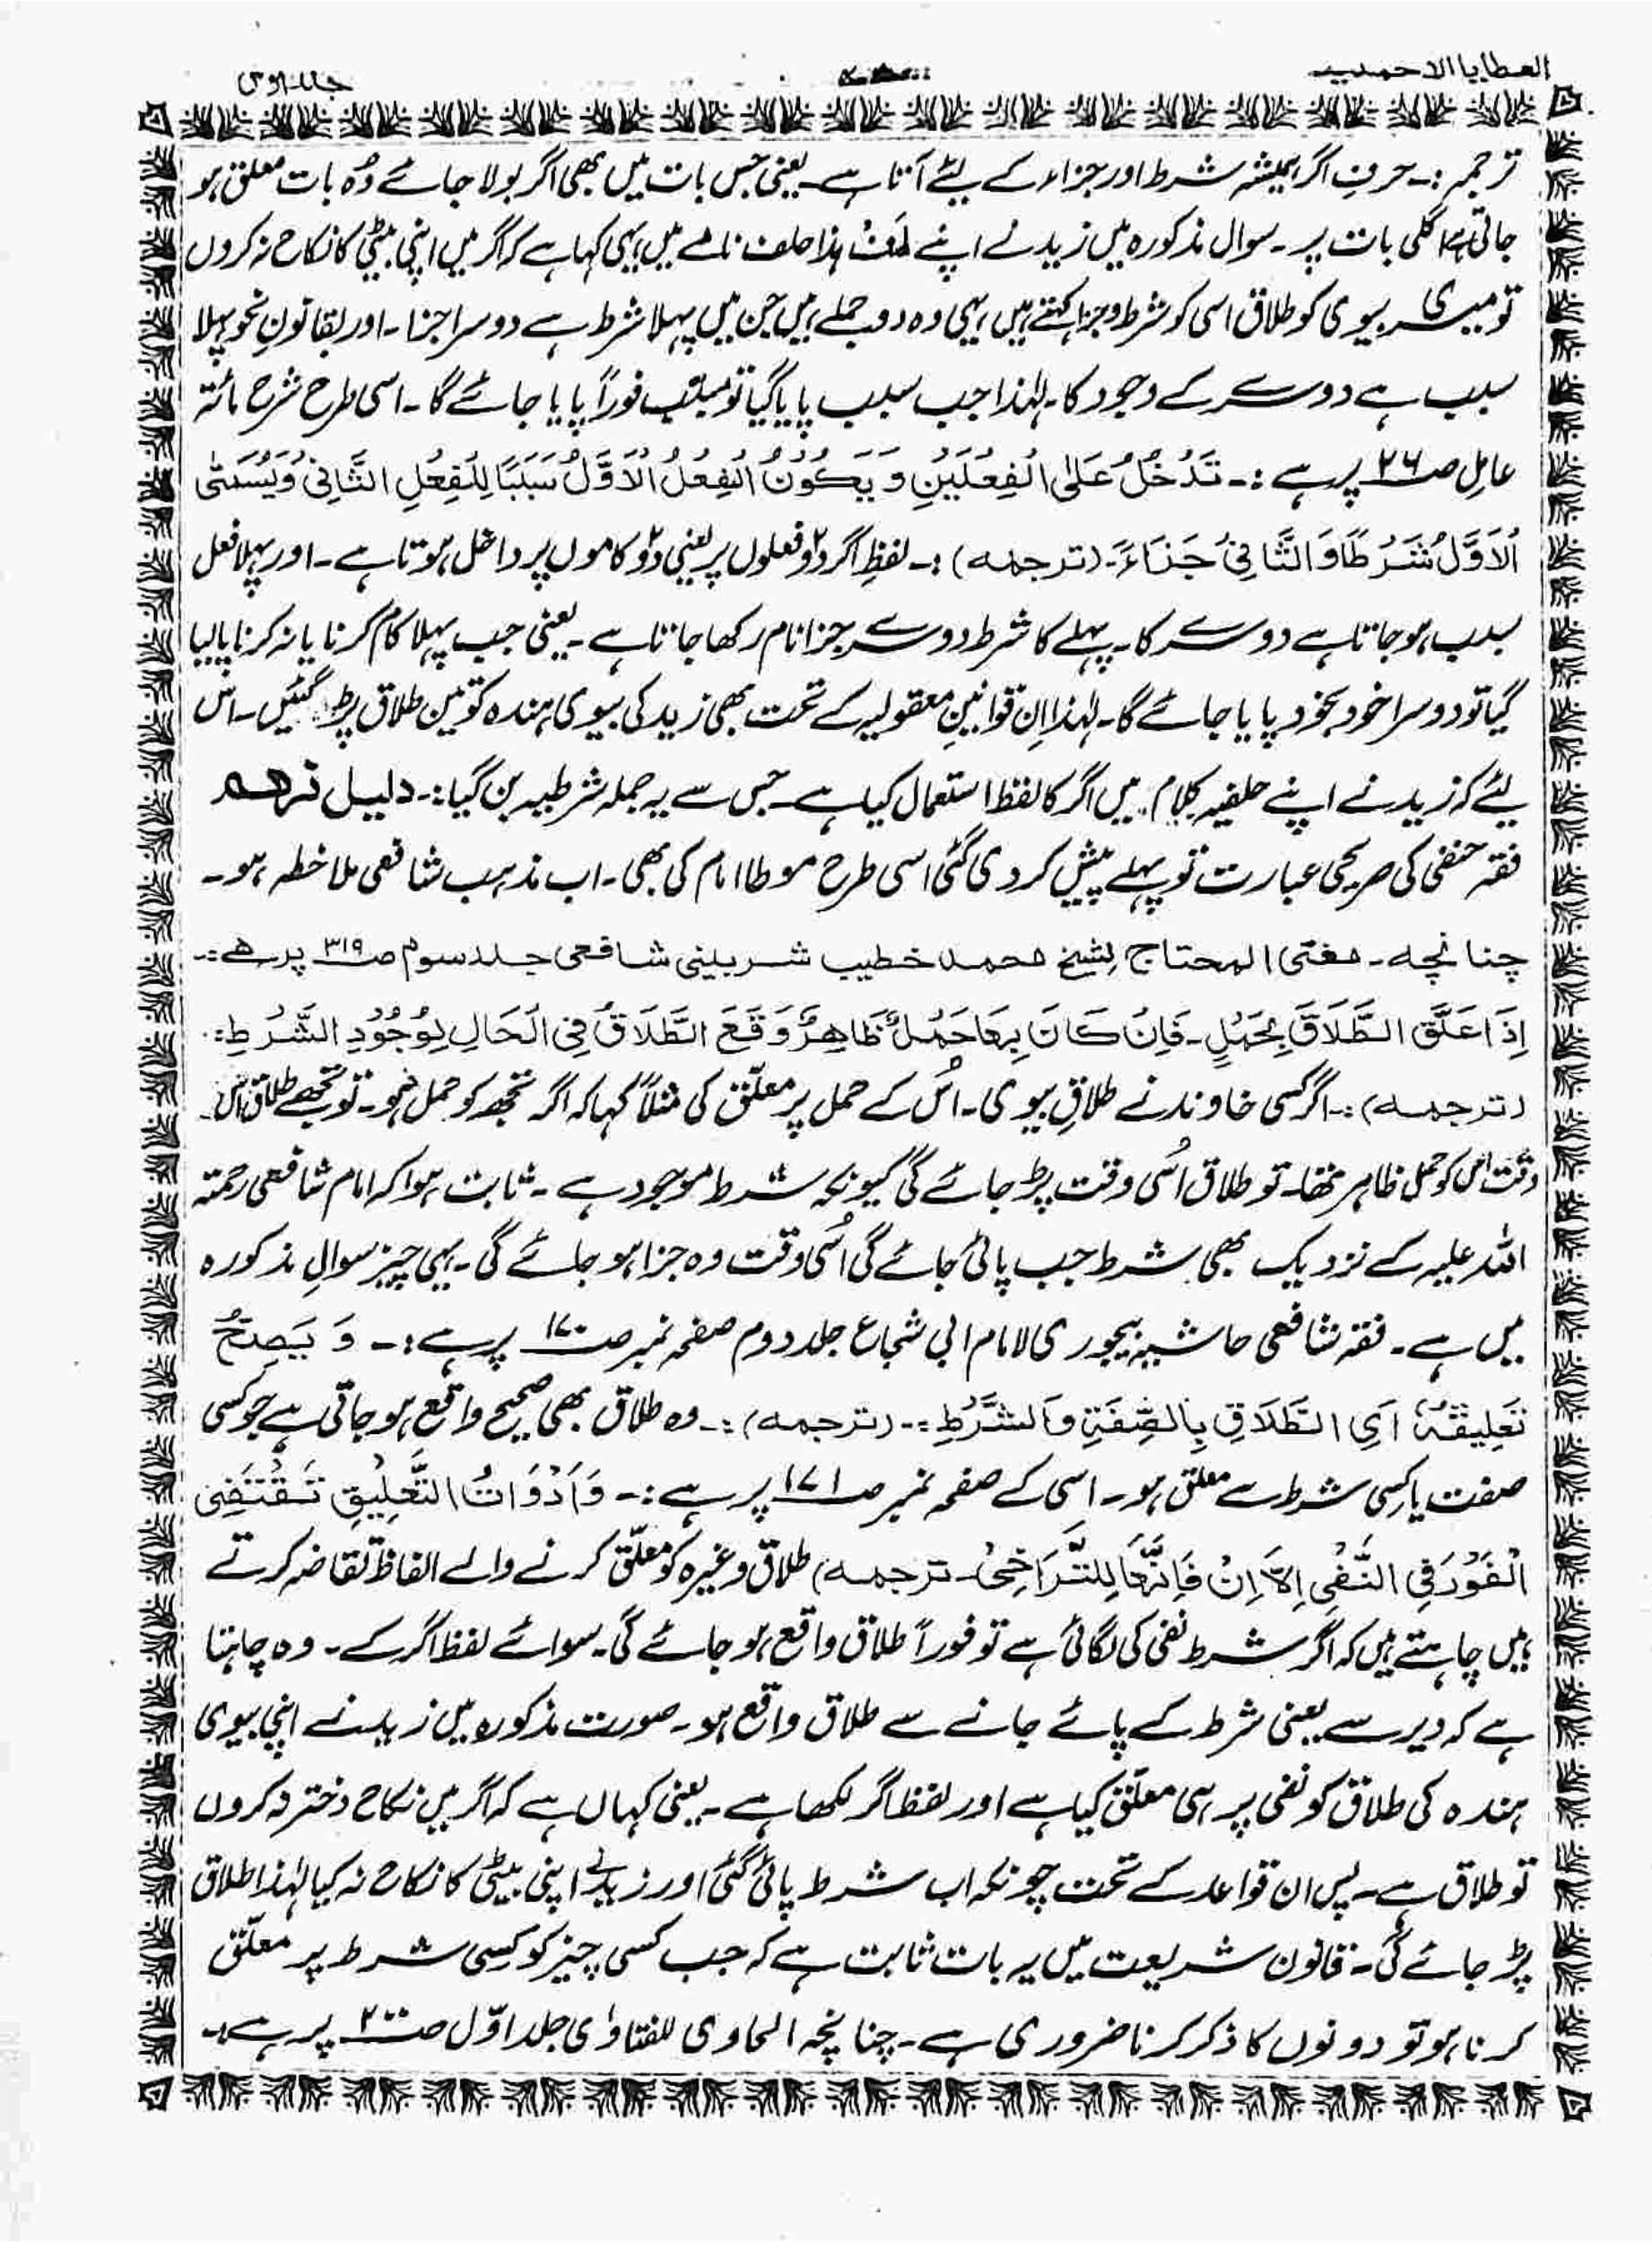 العطایا الاحمدیہ
ترجمہ :۔ حرفِ اگر ہمیشہ شرط اور جزاء کے لیٔے آتا ہے۔ یعنی جس بات میں بھی اگر بولا جائے وُہ بات معلق ہو
جاتی ہے اگلی بات پر۔ سوال مذکورہ میں زید نے اپنے ہذا حلف نامے میں یہی کہا ہے کہ اگر میں اپنی بیٹی کا نکاح نہ کروں
تو میری بیوی کو طلاق اسی کو شرط و جزا کہتے ہیں یہی وہ دو جملے ہیں جن میں پہلا شرط ہے دوسرا جزا۔ اور بقانونِ نحو پہلا
سبب ہے دوسرے کے وجود کا۔ لہٰذا جب سبب پایا گیا تو مسبب فوراً پایا جائے گا۔ اسی طرح شرح مائتہ
عامل صـ۲۶ پر ہے :۔ تَدْخُلُ عَلَی الْفِعْلَیْنِ وَ یَکُوْنُ الْفِعْلُ الْاَوَّلُ سَبَبًا لِلْفِعْلِ الثَّانِیْ وَیُسَمّٰی
اَلْاَوَّلُ شَرْطًا وَالثَّانِیْ جَزَاءً۔ (ترجمہ) :۔ لفظِ اگر دٗو فعلوں پر یعنی دٗو کاموں پر داخل ہوتا ہے۔ اور پہلا فعل
سبب ہو جاتا ہے دوسرے کا۔ پہلے کا شرط دوسرے جزا نام رکھا جاتا ہے۔ یعنی جب پہلا کام کرنا یا نہ کرنا پا لیا
گیا تو دوسرا خود بخود پایا جائے گا۔ لہٰذا اِن قوانینِ معقولیہ کے تحت بھی زید کی بیوی ہندہ کو تین طلاق پڑ گئیں۔ اس
لیٔے کہ زید نے اپنے حلفیہ کلام میں اگر کا لفظ استعمال کیا ہے جس سے یہ جملہ شرطیہ بن گیا :۔ دلیل نہم
فقہ حنفی کی صریحی عبارت تو پہلے پیش کر دی گئی اسی طرح موطا امام کی بھی۔ اب مذہب شافعی ملاخطہ ہو۔
چنانچہ۔ مغنی المحتاج لِشیخ محمد خطیب شربینی شافعی جلد سوم صـ۳۱۹ پر ھے :۔
اِذَا عَلَّقَ الطَّلَاقَ بِحَمْلٍ۔ فَاِنْ کَانَ بِھَا حَمْلٌ ظَاھِرٌ وَقَعَ الطَّلَاقُ فِی الْحَالِ لِوُجُوْدِ الشَّرْطِ :۔
(ترجمہ) :۔ اگر کسی خاوند نے طلاقِ بیوی۔ اُس کے حمل پر معلّق کی مثلاً کہا کہ اگر تجھ کو حمل ہو۔ تو تجھے طلاق اس
وقت اس کو حمل ظاہر تھا۔ تو طلاق اسُی وقت پڑ جائے گی کیونکہ شرط موجود ہے۔ ثابت ہوا کہ امام شافعی رحمتہ
اللہ علیہ کے نزدیک بھی شرط جب پائی جائے گی اسُی وقت وہ جزا ہو جائے گی۔ یہی چیز سوالِ مذکورہ
میں ہے۔ فقہ شافعی حاشیہ بیجوری لامام ابی شجاع جلد دوم صفحہ نمبر صـ۱۷۰ پر ہے :۔ وَ یَصِحُّ
تَعْلِیْقُہٗ اَیِ الطَّلَاقِ بِالصِّفَۃِ وَالشَّرْطِ :۔ (ترجمہ) :۔ وہ طلاق بھی صحیح واقع ہو جاتی ہے جو کسی
صفت یا کسی شرط سے معلق ہو۔ اسی کے صفحہ نمبر صـ۱۷۱ پر ہے :۔ وَاَدْوَاتُ التَّعْلِیْقِ تَقْتَضِی
الْفَوْرَ فِی النَّفْیِ اِلَّا اِنْ فَاِنَّھَا لِلتَّرَاخِیْ۔ ترجمہ) طلاق وغیرہ کو معلّق کرنے والے الفاظ تقاضہ کرتے
ہیں چاہتے ہیں کہ اگر شرط نفی کی لگائی ہے تو فوراً طلاق واقع ہو جائے گی۔ سوائے لفظ اگر کے۔ وہ چاہتا
ہے کہ دیر سے یعنی شرط کے پائے جانے سے طلاق واقع ہو۔ صورت مذکورہ میں زید نے اپنی بیوی
ہندہ کی طلاق کو نفی پر ہی معلّق کیا ہے اور لفظ اگر لکھا ہے۔ یعنی کہاں ہے کہ اگر میں نکاح دختر نہ کروں
تو طلاق ہے۔ پس ان قواعد کے تحت چونکہ اب شرط پائی گئی اور زید نے اپنی بیٹی کا نکاح نہ کیا لہٰذا طلاق
پڑ جائے گی۔ قانون شریعت میں یہ بات ثابت ہے کہ جب کسی چیز کو کسی شرط پر معلّق
کرنا ہو تو دونوں کا ذکر کرنا ضروری ہے۔ چنانچہ الحاوی للفتاوٰی جلد اوّل صـ۲۰۰ پر ہے :۔